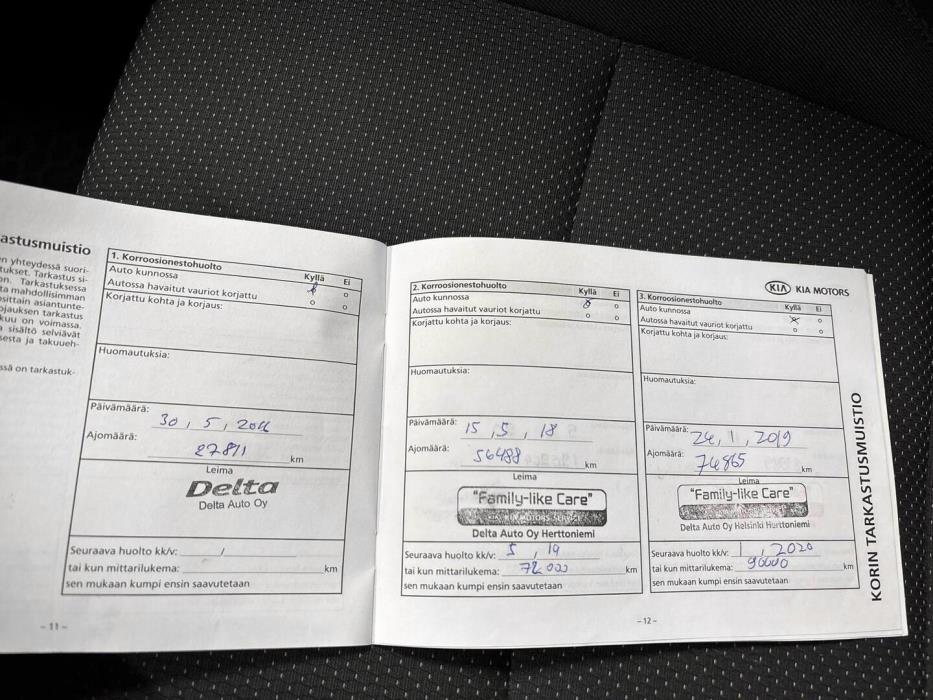 astusmuistio
en yhteydessä suori-
tukset. Tarkastus si-
on. Tarkastuksessa
ta mahdollisimman
osittain asiantunte-
ojauksen tarkastus
kuu on voimassa.
n sisältö selviävät
sesta ja takuueh-
ssä on tarkastuk-
1. Korroosionestohuolto
Auto kunnossa Kyllä Ei
Autossa havaitut vauriot korjattu
Korjattu kohta ja korjaus:
Huomautuksia:
Päivämäärä: 30, 5, 2016
Ajomäärä: 27871 km
Leima
Delta
Delta Auto Oy
Seuraava huolto kk/v: /
tai kun mittarilukema: km
sen mukaan kumpi ensin saavutetaan
- 11 -
2. Korroosionestohuolto
Auto kunnossa Kyllä Ei
Autossa havaitut vauriot korjattu
Korjattu kohta ja korjaus:
Huomautuksia:
Päivämäärä: 15, 5, 18
Ajomäärä: 56488 km
Leima
"Family-like Care"
KIA MOTORS SERVICE
Delta Auto Oy Herttoniemi
Seuraava huolto kk/v: 5, 19
tai kun mittarilukema: 72 000 km
sen mukaan kumpi ensin saavutetaan
KIA KIA MOTORS
3. Korroosionestohuolto
Auto kunnossa Kyllä Ei
Autossa havaitut vauriot korjattu
Korjattu kohta ja korjaus:
Huomautuksia:
Päivämäärä: 24, 1, 2019
Ajomäärä: 74865 km
Leima
"Family-like Care"
Delta Auto Oy Helsinki Herttoniemi
Seuraava huolto kk/v: 1, 2020
tai kun mittarilukema: 90000 km
sen mukaan kumpi ensin saavutetaan
- 12 -
KORIN TARKASTUSMUISTIO